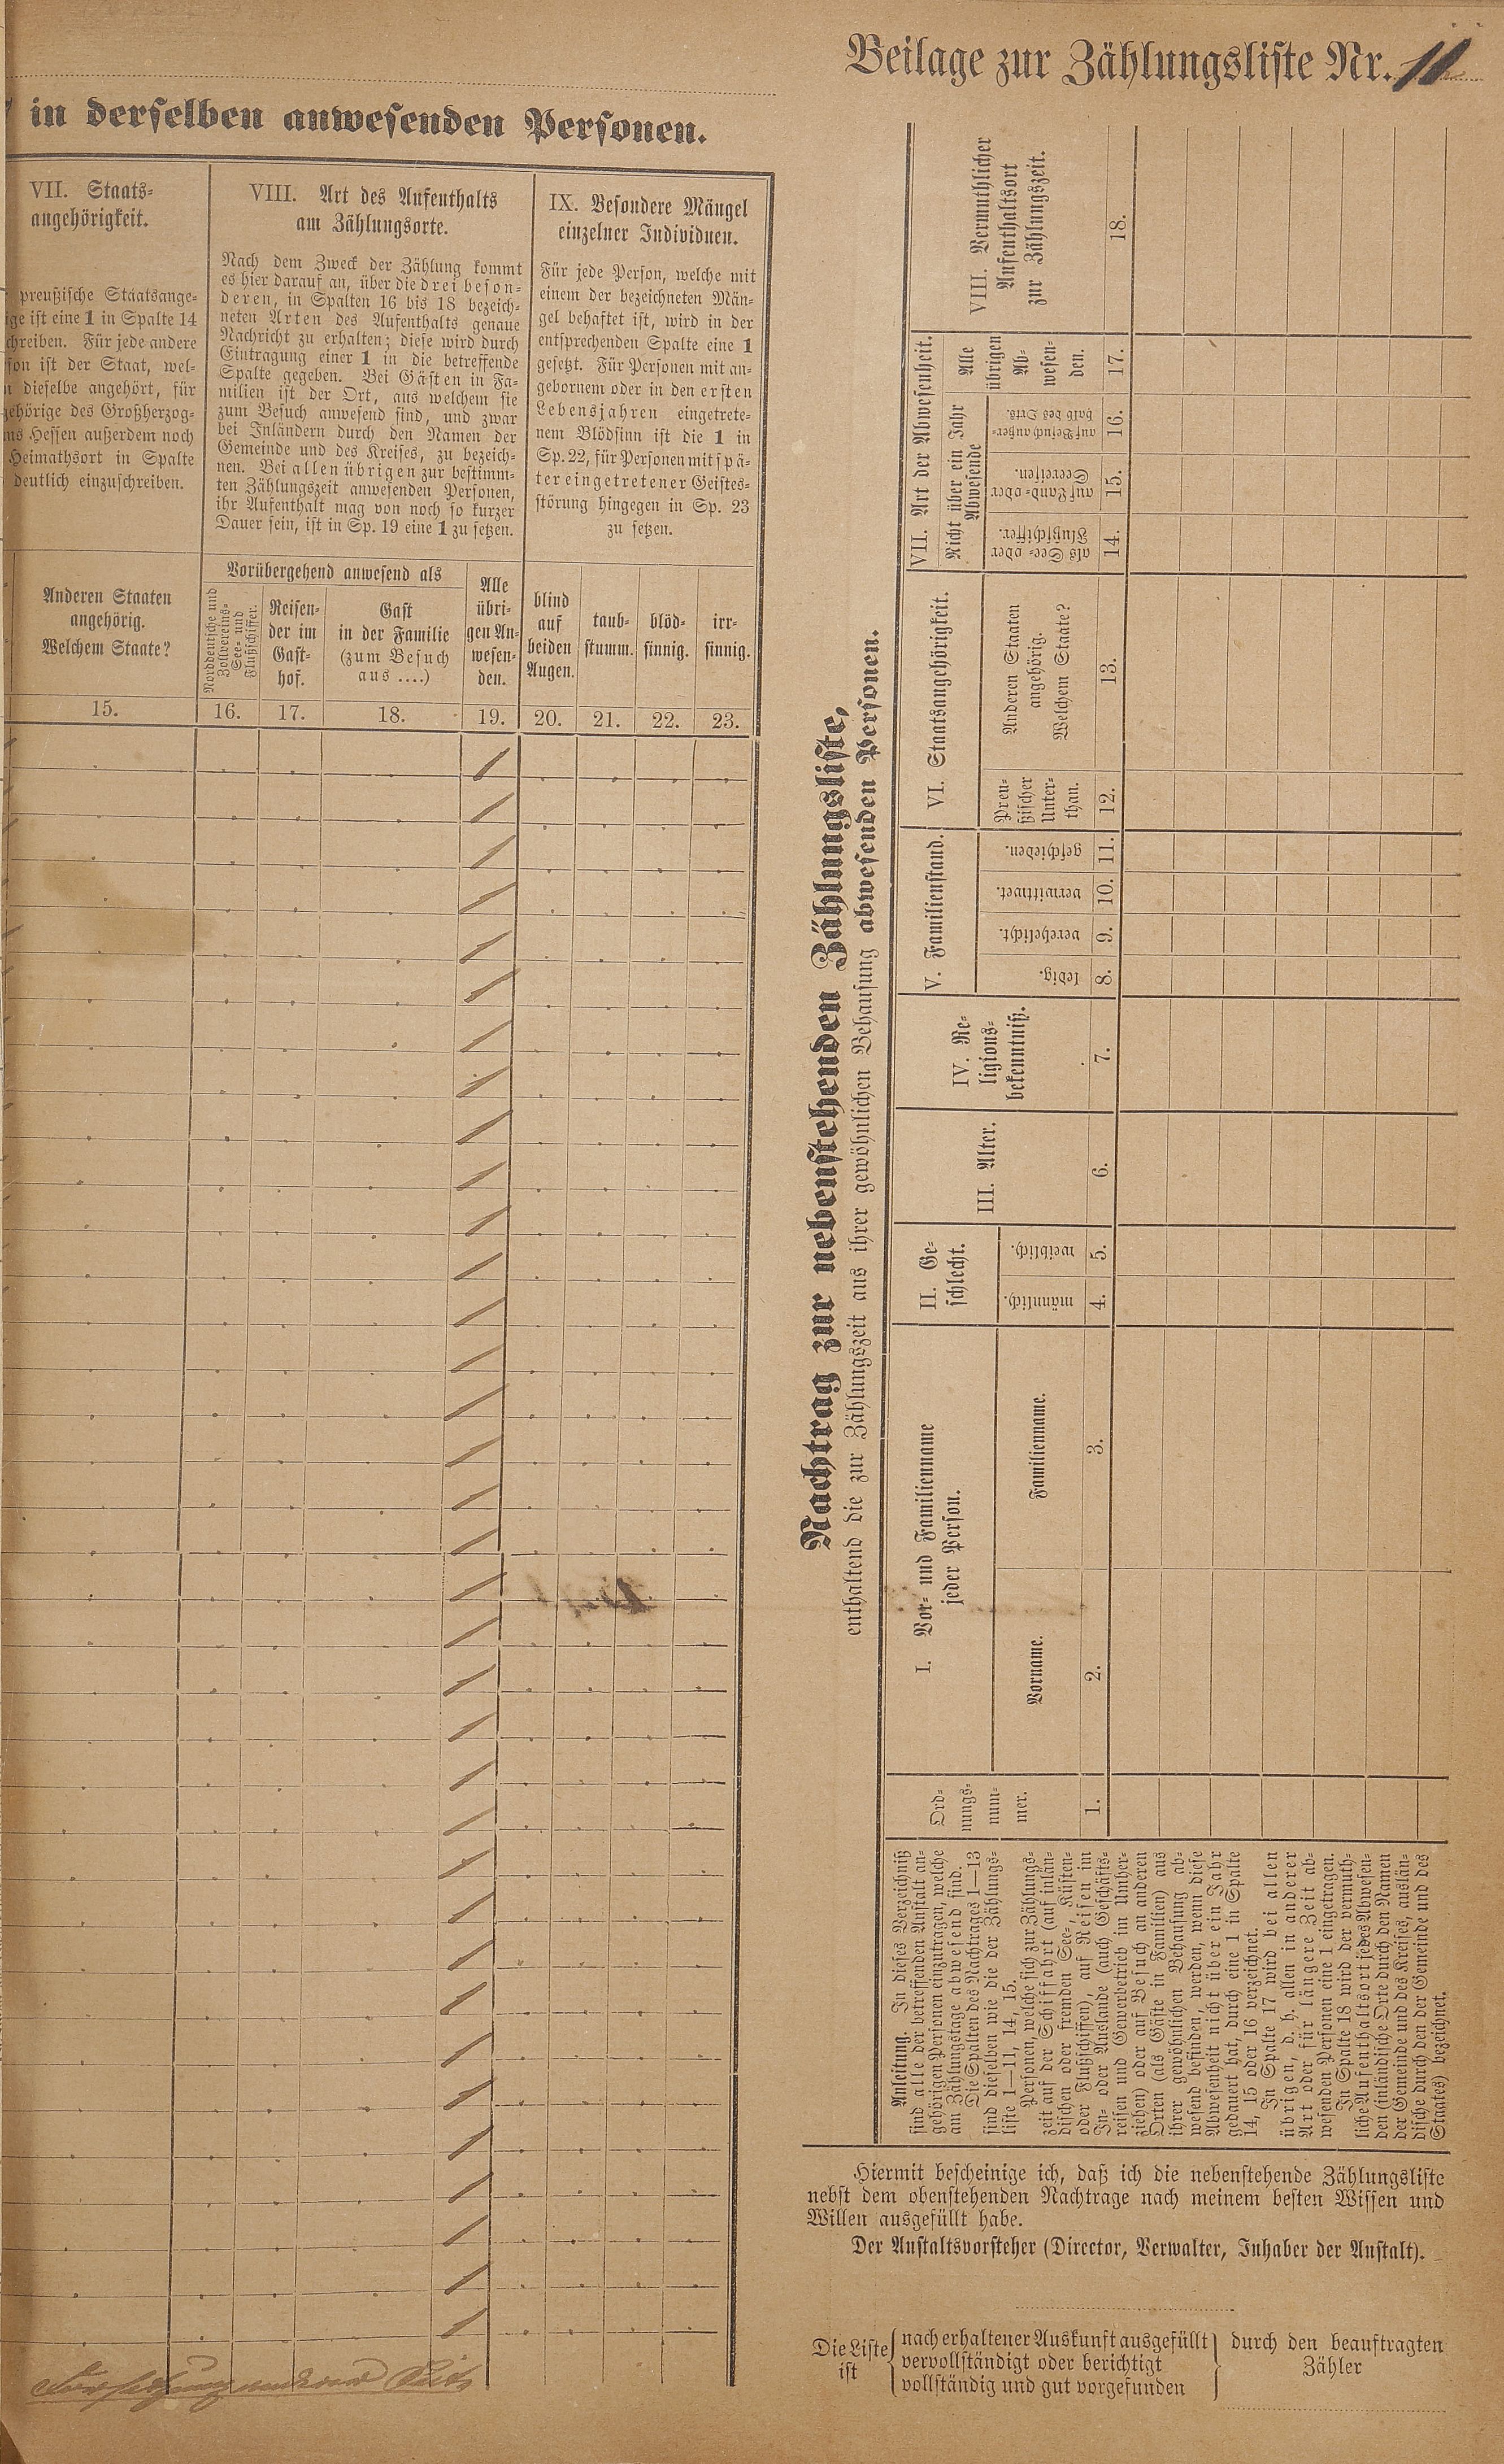 Beilage zur Zählungsliste Nr. 11
in derselben anwesenden Personen.
VII. Staats-
angehörigkeit.
preußische Staatsange-
ige ist eine 1 in Spalte 14
chreiben. Für jede andere
son ist der Staat, wel-
n dieselbe angehört, für
gehörige des Großherzog-
ms Hessen außerdem noch
Heimathsort in Spalte
deutlich einzuschreiben.
Anderen Staaten
angehörig.
Welchem Staate?
15.
VIII. Art des Aufenthalts
am Zählungsorte.
Nach dem Zweck der Zählung kommt
es hier darauf an, über die drei beson-
deren, in Spalten 16 bis 18 bezeich-
neten Arten des Aufenthalts genaue
Nachricht zu erhalten; diese wird durch
Eintragung einer 1 in die betreffende
Spalte gegeben. Bei Gästen in Fa-
milien ist der Ort, aus welchem sie
zum Besuch anwesend sind, und zwar
bei Inländern durch den Namen der
Gemeinde und des Kreises, zu bezeich-
nen. Bei allen übrigen zur bestimm-
ten Zählungszeit anwesenden Personen,
ihr Aufenthalt mag von noch so kurzer
Dauer sein, ist in Sp. 19 eine 1 zu setzen.
Vorübergehend anwesend als
Norddeutsche und
Zollvereins-
See- und
Flußschiffer.
Reisen-
der im
Gast-
hof.
Gast
in der Familie
(zum Besuch
aus ....)
Alle
übri-
gen An-
wesen-
den.
16. 17. 18. 19.
IX. Besondere Mängel
einzelner Individuen.
Für jede Person, welche mit
einem der bezeichneten Män-
gel behaftet ist, wird in der
entsprechenden Spalte eine 1
gesetzt. Für Personen mit an-
gebornem oder in den ersten
Lebensjahren eingetrete-
nem Blödsinn ist die 1 in
Sp. 22, für Personen mit spä-
ter eingetretener Geistes-
störung hingegen in Sp. 23
zu setzen.
blind
auf
beiden
Augen.
taub-
stumm.
blöd-
sinnig.
irr-
sinnig.
20. 21. 22. 23.
Nachtrag zur nebenstehenden Zählungsliste,
enthaltend die zur Zählungszeit aus ihrer gewöhnlichen Behausung abwesenden Personen.
Anleitung. In dieses Verzeichniß
sind alle der betreffenden Anstalt an-
gehörigen Personen einzutragen, welche
am Zählungstage abwesend sind.
Die Spalten des Nachtrages 1—13
sind dieselben wie die der Zählungs-
liste 1—11, 14, 15.
Personen, welche sich zur Zählungs-
zeit auf der Schiffahrt (auf inlän-
dischen oder fremden See-, Küsten-
oder Flußschiffen), auf Reisen im
In- oder Auslande (auch Geschäfts-
reisen und Gewerbetrieb im Umher-
ziehen) oder auf Besuch an anderen
Orten (als Gäste in Familien) aus
ihrer gewöhnlichen Behausung ab-
wesend befinden, werden, wenn diese
Abwesenheit nicht über ein Jahr
gedauert hat, durch eine 1 in Spalte
14, 15 oder 16 verzeichnet.
In Spalte 17 wird bei allen
übrigen, d. h. allen in anderer
Art oder für längere Zeit ab-
wesenden Personen eine 1 eingetragen.
In Spalte 18 wird der vermuth-
liche Aufenthaltsort jedes Abwesen-
den (inländische Orte durch den Namen
der Gemeinde und des Kreises, auslän-
dische durch den der Gemeinde und des
Staates) bezeichnet.
Ord-
nungs-
num-
mer.
1.
I. Vor- und Familienname
jeder Person.
Vorname.
2.
Familienname.
3.
II. Ge-
schlecht.
männlich.
4.
weiblich.
5.
III. Alter.
6.
IV. Re-
ligions-
bekenntniß.
7.
V. Familienstand.
ledig.
8.
verehelicht.
9.
verwittwet.
10.
geschieden.
11.
VI. Staatsangehörigkeit.
Preu-
ßischer
Unter-
than.
12.
Anderen Staaten
angehörig.
Welchem Staate?
13.
VII. Art der Abwesenheit.
Nicht über ein Jahr
Abwesende
als See- oder
Flußschiffer.
14.
auf Land- oder
Seereisen.
15.
auf Besuch außer-
halb des Orts.
16.
Alle
übrigen
Ab-
wesen-
den.
17.
VIII. Vermuthlicher
Aufenthaltsort
zur Zählungszeit.
18.
Hiermit bescheinige ich, daß ich die nebenstehende Zählungsliste
nebst dem obenstehenden Nachtrage nach meinem besten Wissen und
Willen ausgefüllt habe.
Der Anstaltsvorsteher (Director, Verwalter, Inhaber der Anstalt).
Die Liste
ist
nach erhaltener Auskunft ausgefüllt
vervollständigt oder berichtigt
vollständig und gut vorgefunden
durch den beauftragten
Zähler